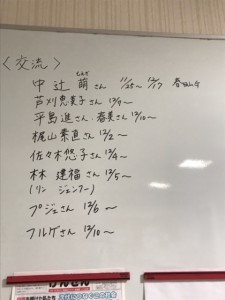 ＜交流＞
もえぎ
中辻 萌さん 11/25〜12/17 春日山今
芦刈恵美子さん 12/9〜
平島進さん・春美さん 12/10〜
梶山素直さん 12/2〜
佐々木悠子さん 12/4〜
林 建福さん 12/5〜
(リン ジェンフー)
プジェさん 12/6〜
フルゲさん 12/10〜
けんさん